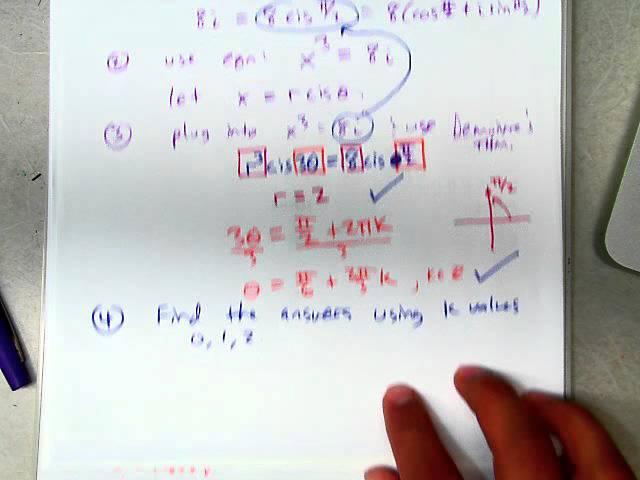 8i = 8 cis π/2 = 8(cos π/2 + i sin π/2)
② use eqn: x³ = 8i
let x = r cis θ
③ plug into x³ = 8i ; use Demoivre's Thm.
r³ cis 3θ = 8 cis π/2
r = 2
π/2
3θ/3 = (π/2 + 2πk)/3
θ = π/6 + 2π/3 k , k∈ℤ
④ Find the answers using k values
0, 1, 2